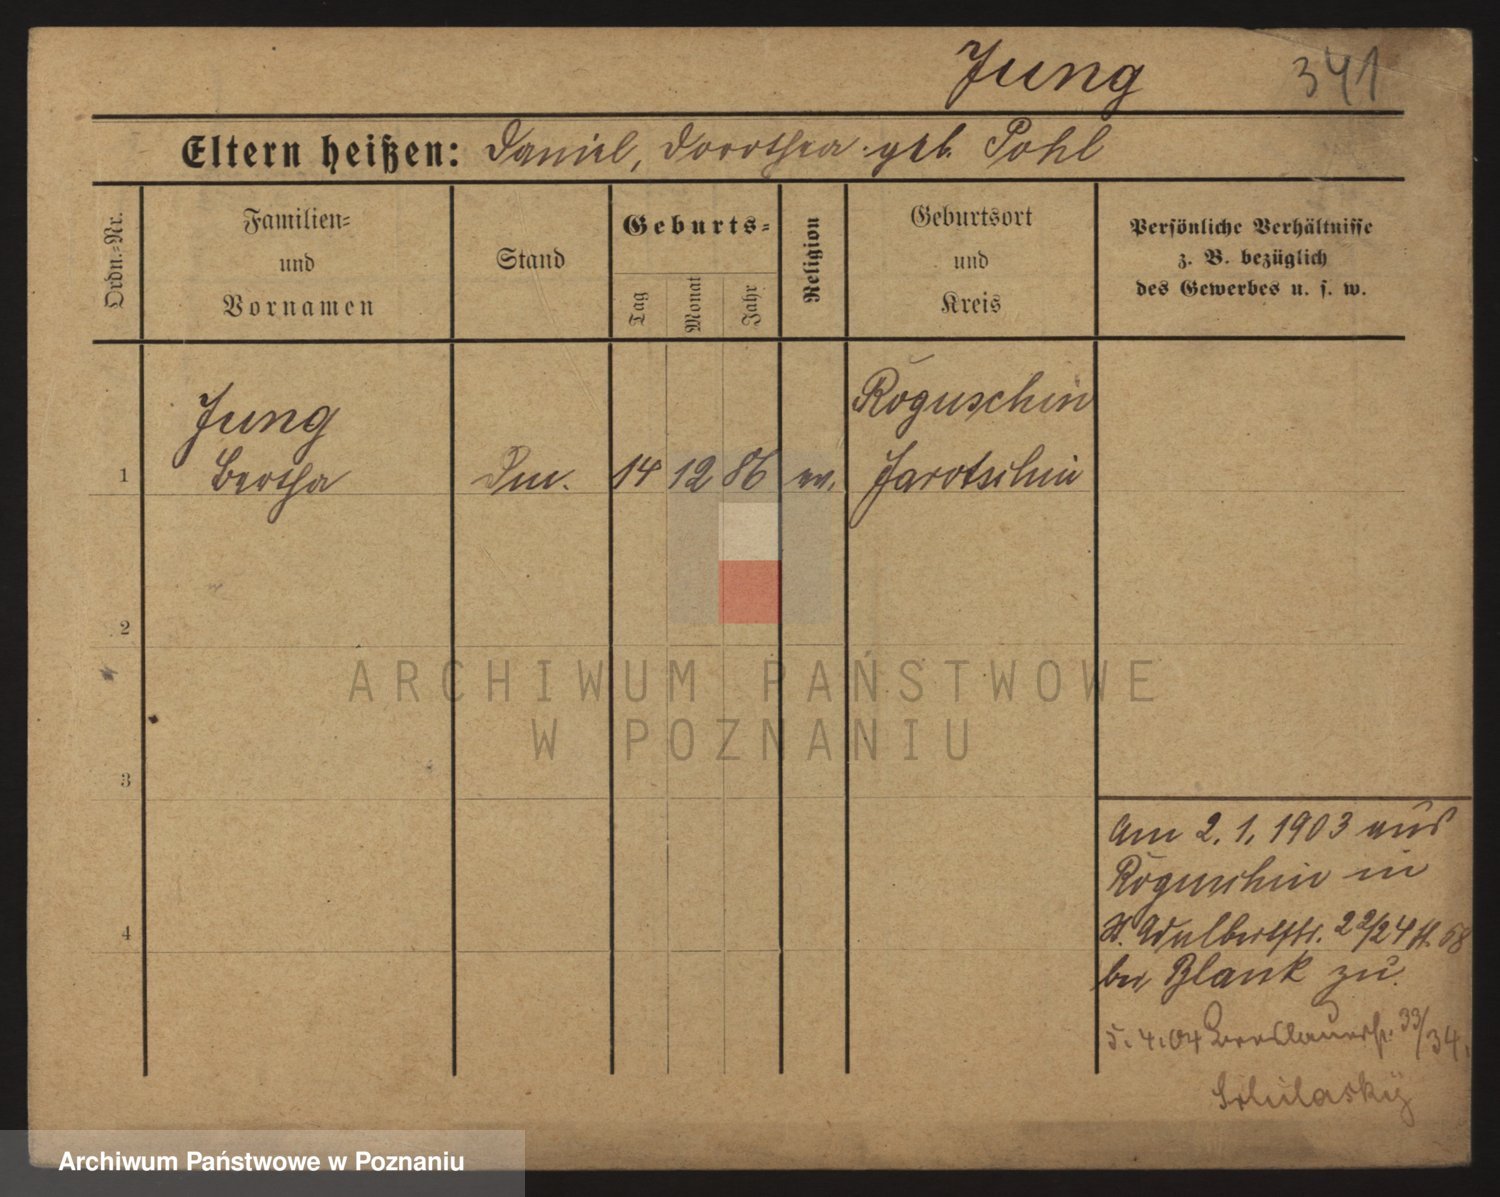 Jung
341
Eltern heißen: Daniel, Dorothea geb. Pohl
Ordn.-Nr.
Familien-
und
Vornamen
Stand
Geburts-
Tag
Monat
Jahr
Religion
Geburtsort
und
Kreis
Persönliche Verhältnisse
z. B. bezüglich
des Gewerbes u. s. w.
Jung
Roguschin
1 Bertha 14 12 86 ev. Jarotschin
2
3
4
Am 2. 1. 1903 aus
Roguschin in
St. Adalbertstr. 22/24 68
bei Blank zu.
5. 4. 04 Breslauerstr. 33/34.
ARCHIWUM PAŃSTWOWE
W POZNANIU
Archiwum Państwowe w Poznaniu